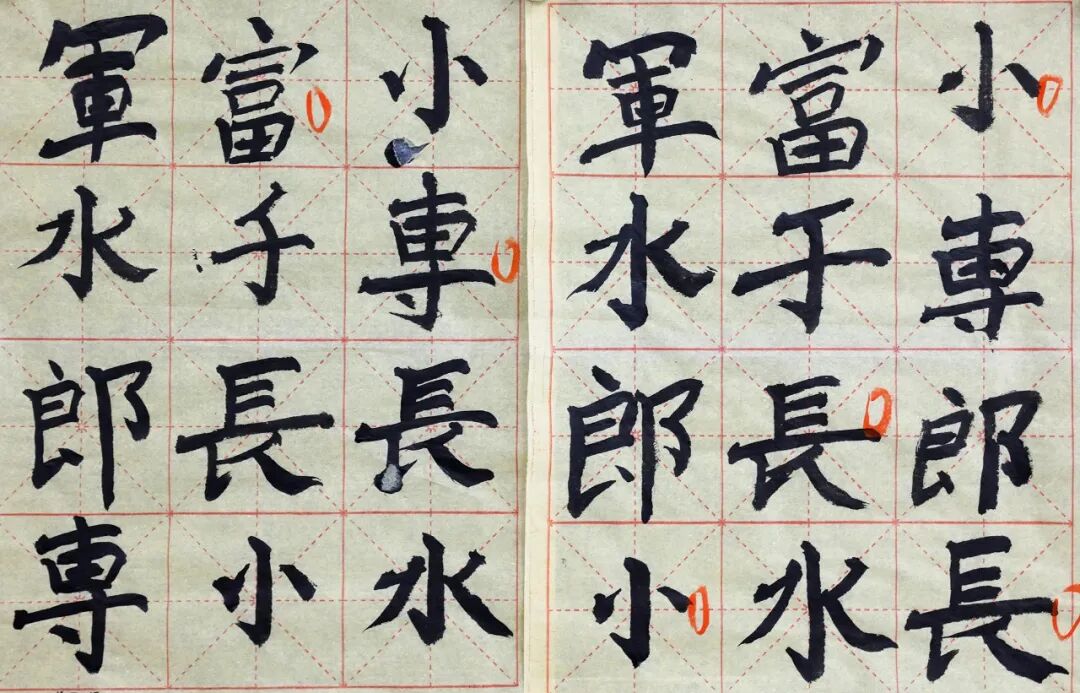 小専郎長
富于長水
軍水郎小
小専長水
富于長小
軍水郎専